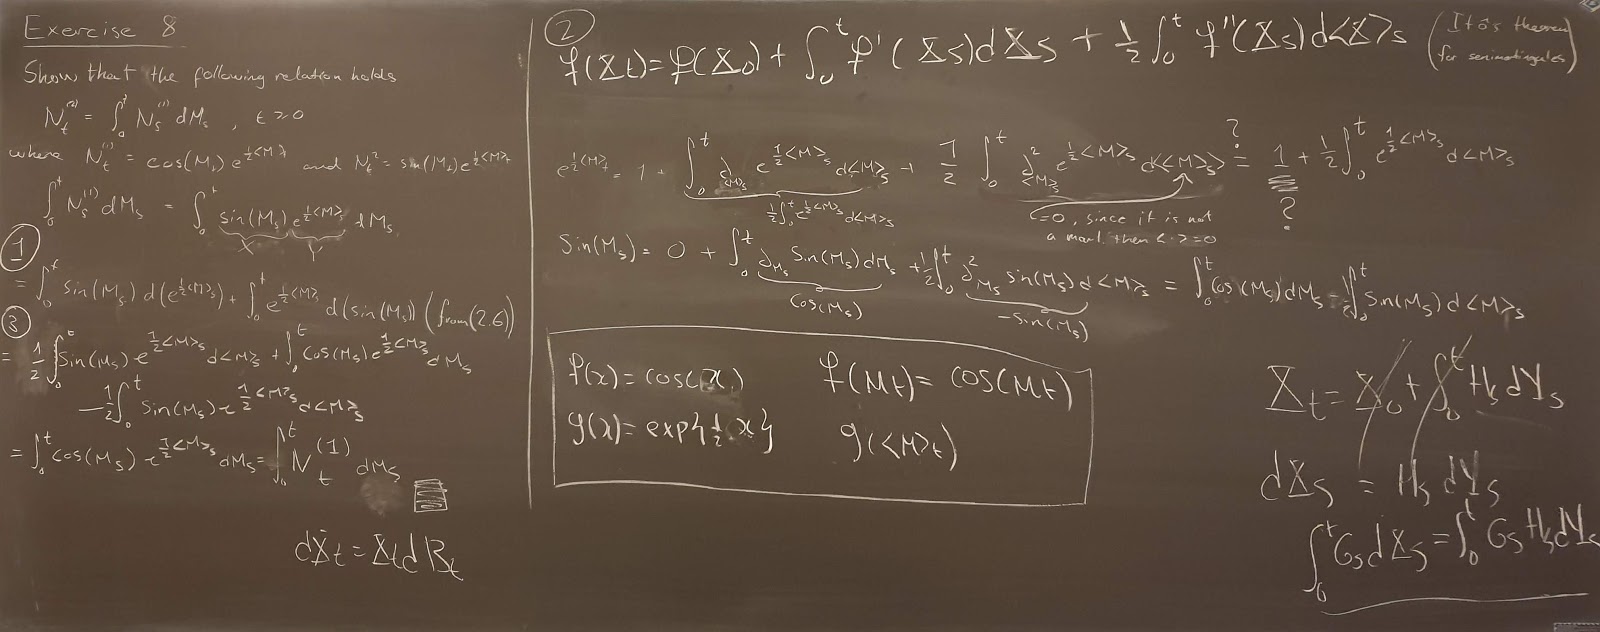 Exercise 8
Show that the following relation holds
N_t^{(2)} = ∫_0^t N_s^{(1)} dM_s , t ≥ 0
where N_t^{(1)} = cos(M_t) e^{½<M>_t} and N_t^2 = sin(M_t) e^{½<M>_t}
∫_0^t N_s^{(1)} dM_s = ∫_0^t sin(M_s) e^{½<M>_s} dM_s
X Y
①
= ∫_0^t sin(M_s) d(e^{½<M>_s}) + ∫_0^t e^{½<M>_s} d(sin(M_s)) (from (2.6))
③
= ½ ∫_0^t sin(M_s) e^{½<M>_s} d<M>_s + ∫_0^t cos(M_s) e^{½<M>_s} dM_s
- ½ ∫_0^t sin(M_s) e^{½<M>_s} d<M>_s
= ∫_0^t cos(M_s) e^{½<M>_s} dM_s = ∫_0^t N_t^{(1)} dM_s
dX_t = X_t dB_t
②
f(X_t) = f(X_0) + ∫_0^t f'(X_s) dX_s + ½ ∫_0^t f''(X_s) d<X>_s (Itô's theorem
for semimartingales)
e^{½<M>_t} = 1 + ∫_0^t ∂_{<M>_s} e^{½<M>_s} d<M>_s + ½ ∫_0^t ∂²_{<M>_s} e^{½<M>_s} d<<M>_s> ?= 1 + ½ ∫_0^t e^{½<M>_s} d<M>_s
½ ∫_0^t e^{½<M>_s} d<M>_s
=0, since it is not
a mart. then <·> = 0
?
Sin(M_s) = 0 + ∫_0^t ∂_{M_s} Sin(M_s) dM_s + ½ ∫_0^t ∂²_{M_s} sin(M_s) d<M>_s = ∫_0^t Cos(M_s) dM_s - ½ ∫_0^t Sin(M_s) d<M>_s
Cos(M_s) -Sin(M_s)
f(x) = cos(x) f(M_t) = cos(M_t)
g(x) = exp{½ x} g(<M>_t)
X_t = X_0 + ∫_0^t H_s dY_s
dX_s = H_s dY_s
∫_0^t G_s dX_s = ∫_0^t G_s H_s dY_s